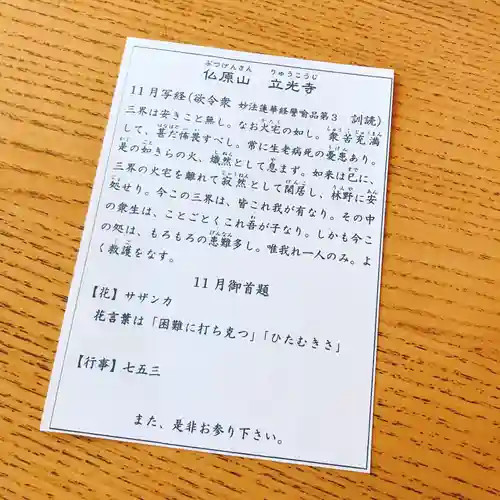 ぶつげんさん　りゅうこうじ
仏原山　立光寺
11月写経(欲令衆　妙法蓮華経譬喩品第3　訓読)
三界は安きこと無し。なお火宅の如し。衆苦充満
して、甚だ怖畏すべし。常に生老病死の憂患あり。
是の如きらの火、熾然として息まず。如来は已に、
三界の火宅を離れて寂然として閑居し、林野に安
処せり。今この三界は、皆これ我が有なり。その中
の衆生は、ことごとくこれ吾が子なり。しかも今こ
の処は、もろもろの患難多し。唯我れ一人のみ。よ
く救護をなす。
11月御首題
【花】サザンカ
花言葉は「困難に打ち克つ」「ひたむきさ」
【行事】七五三
また、是非お参り下さい。